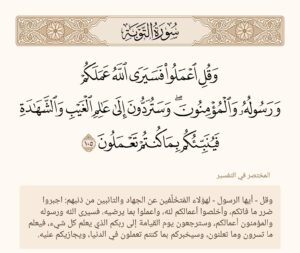 سُورَةُ التَّوۡبَةِ
وَقُلِ ٱعۡمَلُواْ فَسَيَرَى ٱللَّهُ عَمَلَكُمۡ
وَرَسُولُهُۥ وَٱلۡمُؤۡمِنُونَۖ وَسَتُرَدُّونَ إِلَىٰ عَٰلِمِ ٱلۡغَيۡبِ وَٱلشَّهَٰدَةِ
فَيُنَبِّئُكُم بِمَا كُنتُمۡ تَعۡمَلُونَ ١٠٥
المختصر في التفسير
وقل - أيها الرسول - لهؤلاء المتخلّفين عن الجهاد والتائبين من ذنبهم: اجبروا
ضرر ما فاتكم، وأخلصوا أعمالكم لله، واعملوا بما يرضيه. فسيرى الله ورسوله
والمؤمنون أعمالكم، وسترجعون يوم القيامة إلى ربكم الذي يعلم كل شيء، فيعلم
ما تسرون وما تعلنون، وسيخبركم بما كنتم تعملون في الدنيا، ويجازيكم عليه.